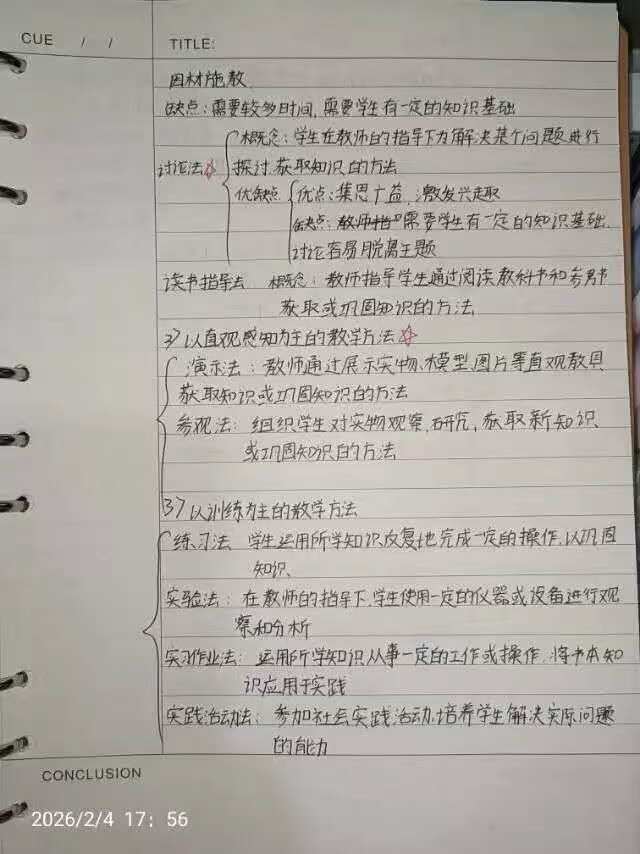 CUE / /
TITLE:
因材施教
缺点:需要较多时间,需要学生有一定的知识基础
概念:学生在教师的指导下为解决某个问题进行
讨论法☆
探讨,获取知识的方法
优缺点
优点:集思广益,激发兴趣
缺点:需要学生有一定的知识基础,
讨论容易脱离主题
读书指导法 概念:教师指导学生通过阅读教科书和参考书
获取或巩固知识的方法
3>以直观感知为主的教学方法☆
演示法:教师通过展示实物、模型、图片等直观教具
获取知识或巩固知识的方法
参观法:组织学生对实物观察,研究,获取新知识
或巩固知识的方法
3>以训练为主的教学方法
练习法 学生运用所学知识反复地完成一定的操作,以巩固
知识、
实验法:在教师的指导下,学生使用一定的仪器或设备进行观
察和分析
实习作业法:运用所学知识从事一定的工作或操作,将书本知
识应用于实践
实践活动法:参加社会实践活动,培养学生解决实际问题
的能力
CONCLUSION
2026/2/4 17:56